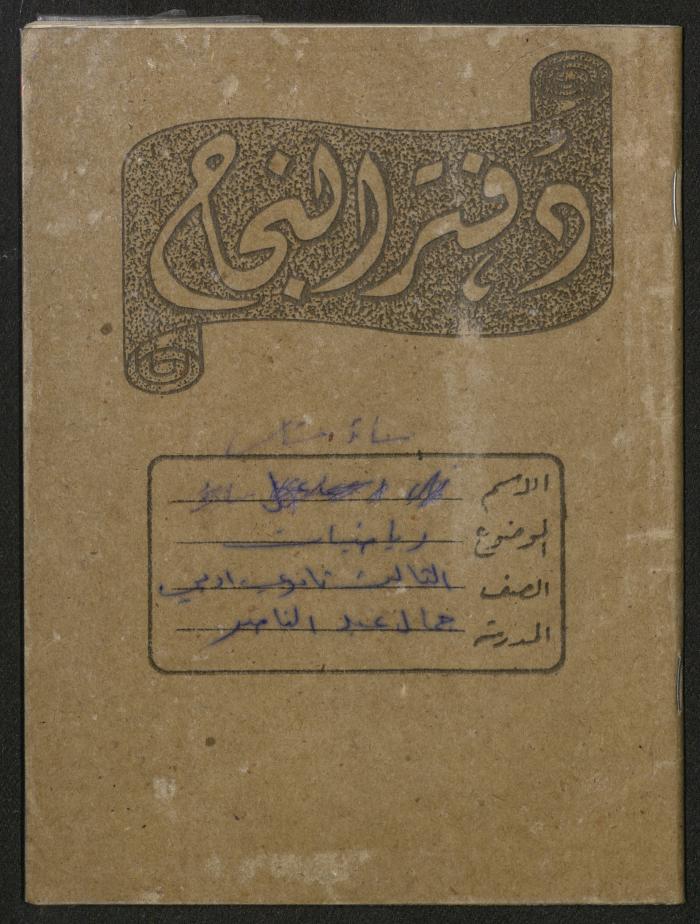 دفتر النجاح
الاسم
الموضوع رياضيات
الصف الثالث ثانوي ادبي
المدرسة جمال عبد الناصر